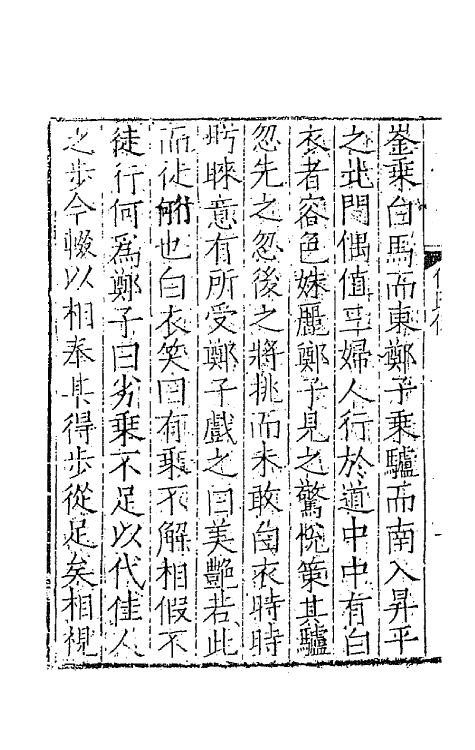 崟乘白馬而東鄭子乘驢而南入昇平
之北門偶值三婦人行於道中中有白
衣者容色姝麗鄭子見之驚悅策其驢
忽先之忽後之將挑而未敢白衣時時
盻睞意有所受鄭子戲之曰美艷若此
而徒行何也白衣笑曰有乘不解相假不
徒行何爲鄭子曰劣乘不足以代佳人
之步今輙以相奉某得步從足矣相視